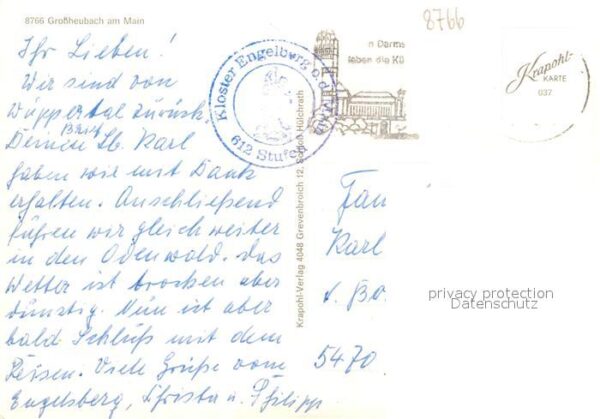 8766 Großheubach am Main
8766
Ihr Lieben!
Wir sind von
Wuppertal zurück.
Deinen Lb. Brief Karl
haben wir mit Dank
erhalten. Anschließend
fuhren wir gleich weiter
in den Odenwald. Das
Wetter ist trocken aber
dunstig. Nun ist aber
bald Schluß mit dem
Reisen. Viele Grüße vom
Engelsberg, Christa u. Philipp
Kloster Engelburg a.d. Main
612 Stufen
n Darms
leben die Kü
Krapohl-Verlag 4048 Grevenbroich 12, Schloß Hülchrath
Krapohl-
KARTE
037
Fam
Karl
5470
privacy protection
Datenschutz